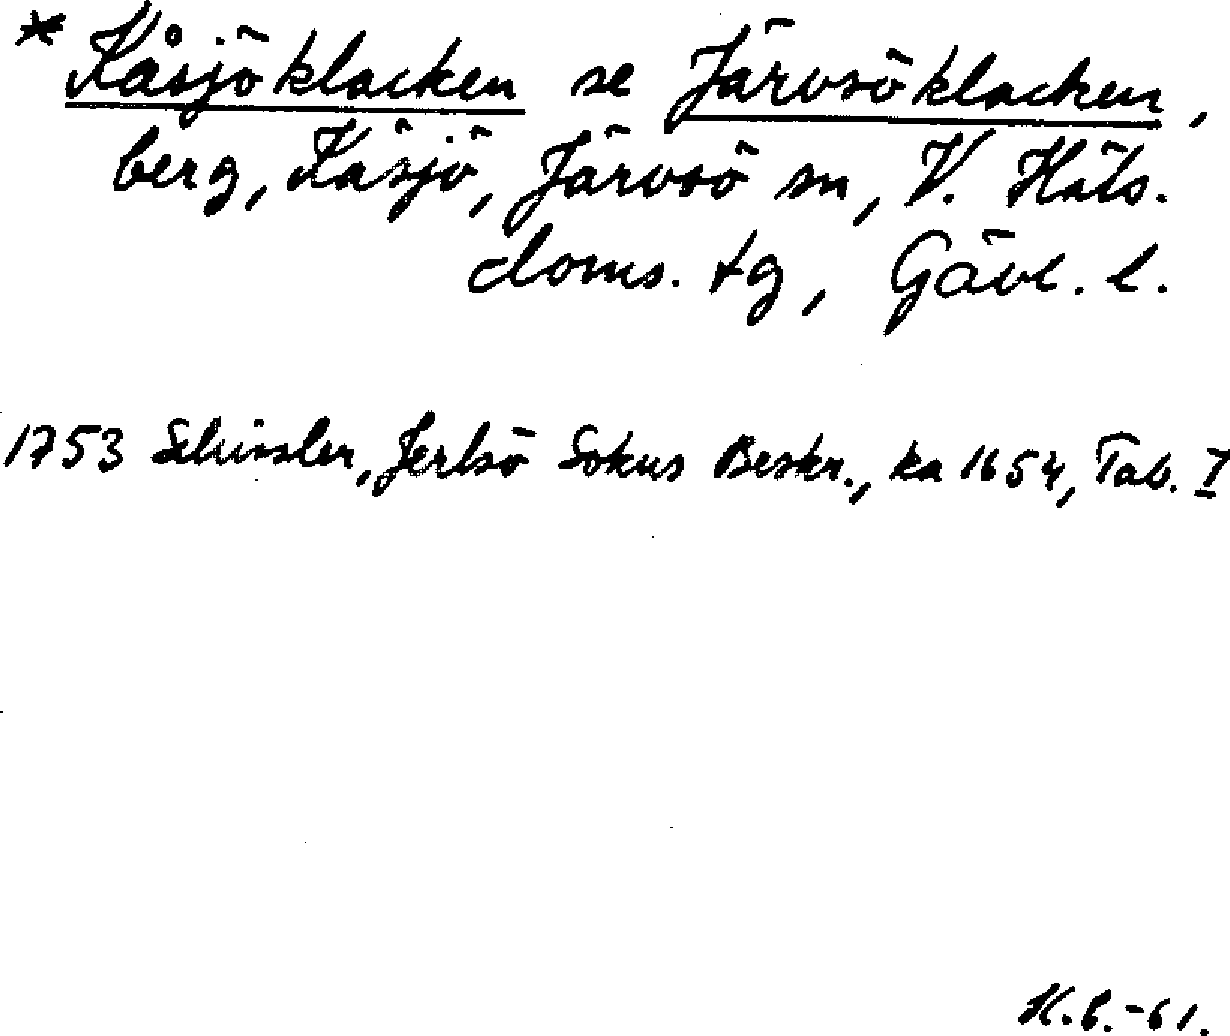 * Kåsjöklacken se Järvsöklacken,
berg, Kåsjö, Järvsö sn, V. Häls.
doms. tg, Gävl. l.
1753 Schissler, Jerlsö Sokns Beskr., ka 1654, Tab. I
H.B.-61.